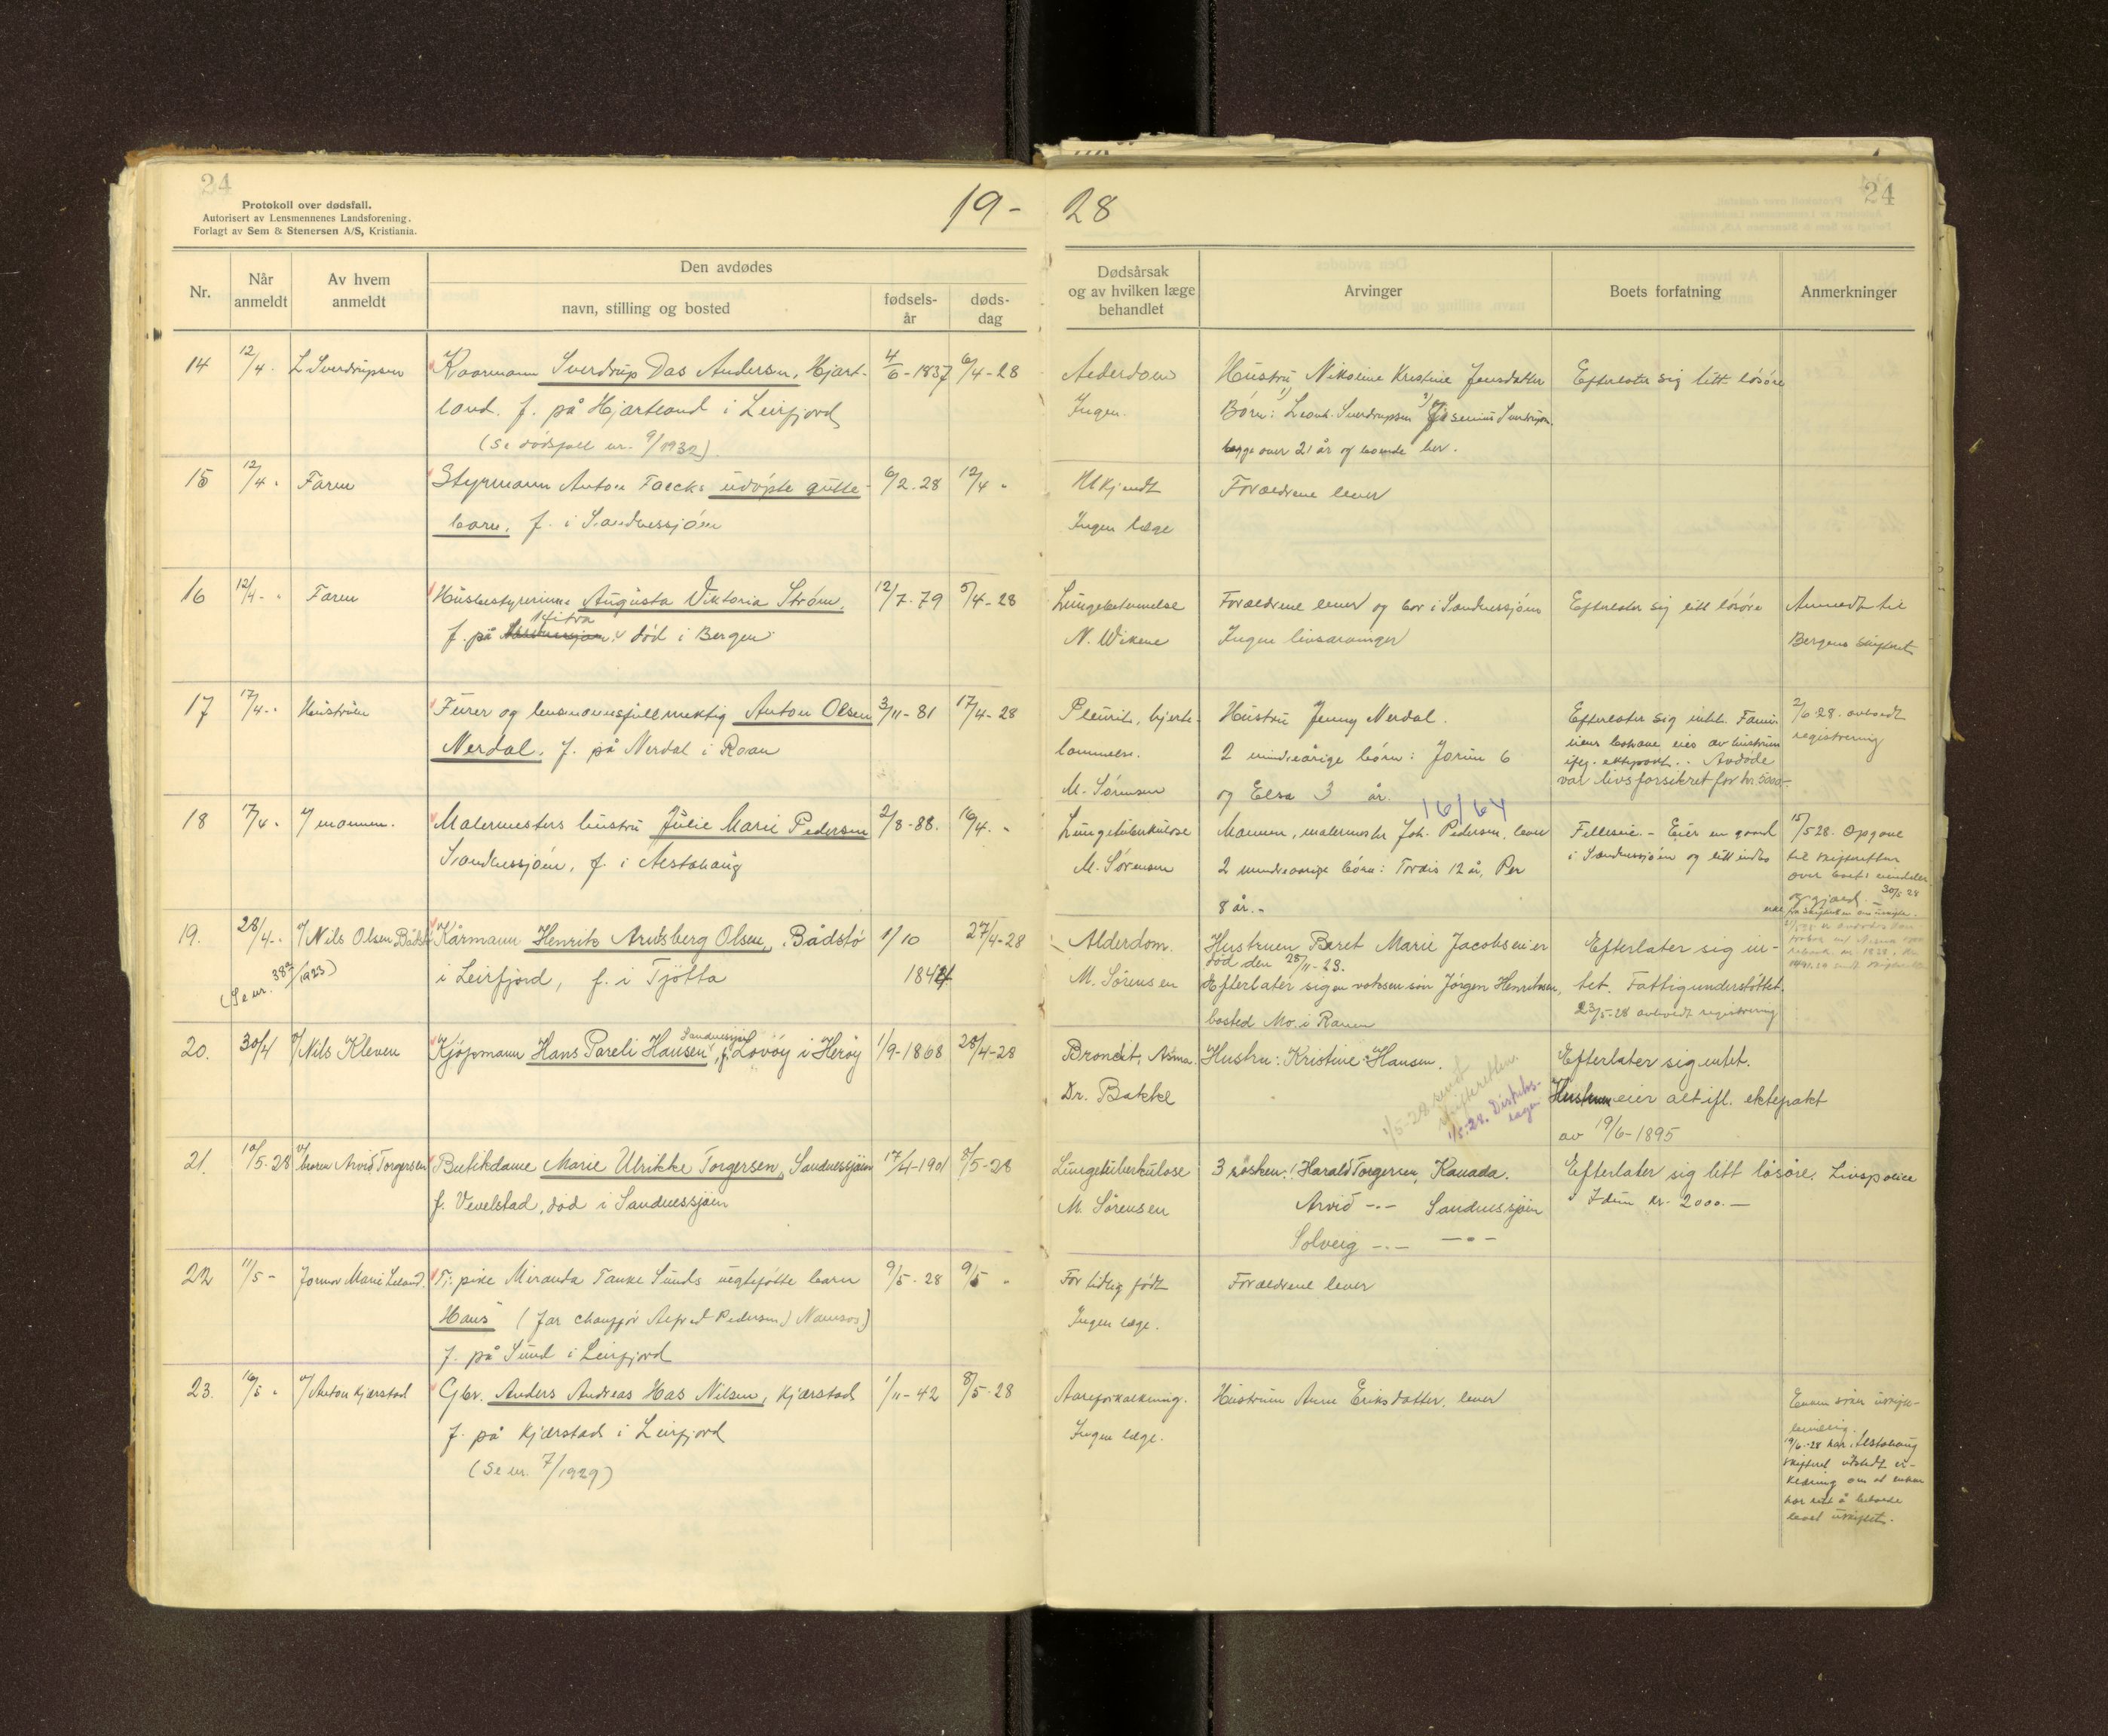 24
Protokoll over dødsfall.
Autorisert av Lensmennenes Landsforening.
Forlagt av Sem & Stenersen A/S, Kristiania.
19-
28
24
Nr.
Når anmeldt
Av hvem anmeldt
Den avdødes
navn, stilling og bosted
fødsels-år
døds-dag
Dødsårsak og av hvilken læge behandlet
Arvinger
Boets forfatning
Anmerkninger
14 12/4. L Sverdrupsen Kaarmann Sverdrup Das Andersen, Hjart- 4/6-1837 6/4-28 Alderdom Hustru Nikoline Kristine Jensdatter Efterlater sig litt løsøre
land. f. på Hjartland i Leirfjord Ingen. Børn: 1) Leonh. Sverdrupsen 2) Sverdrupsen.
(Se dødsfall nr. 9/1932) begge over 21 år og boende her.
15 12/4 " Faren Styrmann Anton Falcks udøpte gutte- 6/2.28 12/4 " Ukjendt Forældrene lever
barn. f. i Sandnessjøen Ingen læge
16 12/4 - " Faren Husbestyrerinne Augusta Viktoria Strøm. 12/7-79 5/4-28 Lungebetennelse Forældrene lever og bor i Sandnessjøen Efterlater sig litt løsøre Anmeldt til
f. på Hitra død i Bergen N. Wikene Ingen livsarvinger Bergens skifteret
17 17/4 - " Hustruen Furer og lensmannsfullmektig Anton Olsen 3/11-81 17/4-28 Pleurit, hjerte- Hustru Jenny Nerdal. Efterlater sig intet. Fami- 2/6 28. avholdt
Nerdal. f. på Nerdal i Roan lammelse. 2 mindreårige børn: Jorun 6 liens bohave eies av hustruen registrering
iflg. ektepakt. Avdøde
M. Sørensen og Elsa 3 år. var livsforsikret for kr. 5000.-
16/64
18 17/4 " v/ mannen. Malermesters hustru Julie Marie Pedersen 2/8-88. 16/4. - Lungetuberkulose Mannen, malermester Joh. Pedersen, lever Felleseie. - Eier en gaard 15/5 28. Opgave
Sandnessjøen, f. i Alstahaug M. Sørensen 2 mindreaarige børn: Tordis 12 år, Per i Sandnessjøen og litt indbo til skifteretten
8 år.- 30/5 28
19. 28/4 - " v/ Nils Olsen Bådstø Kårmann Henrik Arntsberg Olsen, Bådstø 1/10 27/4-28 Alderdom. Hustruen Beret Marie Jacobsen er Efterlater sig in-
død den 28/11-23.
(Se nr. /1923) i Leirfjord, f. i Tjøtta 1844 M. Sørensen Efterlater sig en voksen søn Jørgen Henriksen, tet. Fattigunderstøttet.
bosted Mo i Ranen 23/5-28 avholdt registrering
20. 30/4 v/ Nils Kleven Kjøpmann Hans Pareli Hansen Sandnessjøen, f. Lovøy i Herøy 1/9-1868 28/4-28 Bronkit, Asma. Hustru: Kristine Hansen. Efterlater sig intet.
Dr. Bakke 1/5-28 sendt skifteretten. Hustruen eier alt ifl. ektepakt
1/5-28. av 19/6-1895
21. 10/5-28 v/ broren Arvid Torgersen Butikdame Marie Ulrikke Torgersen, Sandnessjøen 17/4-1901 8/5-28 Lungetuberkulose 3 søsken: Harald Torgersen, Kanada. Efterlater sig litt løsøre. Livspolice
f. Vevelstad, død i Sandnessjøen M. Sørensen Arvid -"- Sandnessjøen Idun kr. 2000.-
Solveig -"- -"-
22 11/5 - Jormor Marie Leland. Tj. pike Miranda Tanke Sunds uegtefødte barn 9/5-28 9/5 " For tidlig født Forældrene lever
"Hans" (far chauffør Alfred Pedersen, Namsos) Ingen læge.
f. på Sund i Leirfjord
23. 16/5 " v/ Anton Kjærstad Gbr. Anders Andreas Has Nilsen, Kjærstad 1/11-42 8/5-28 Aareforkalkning. Hustruen Anne Eriksdatter, lever Enken søker uskifte-
f. på Kjærstad i Leirfjord Ingen læge. bevilling.
(Se nr. 7/1929) 19/6-28 har Alstahaug
skifteret utstedt er-
klæring om at enken
har rett å beholde
boet uskiftet.